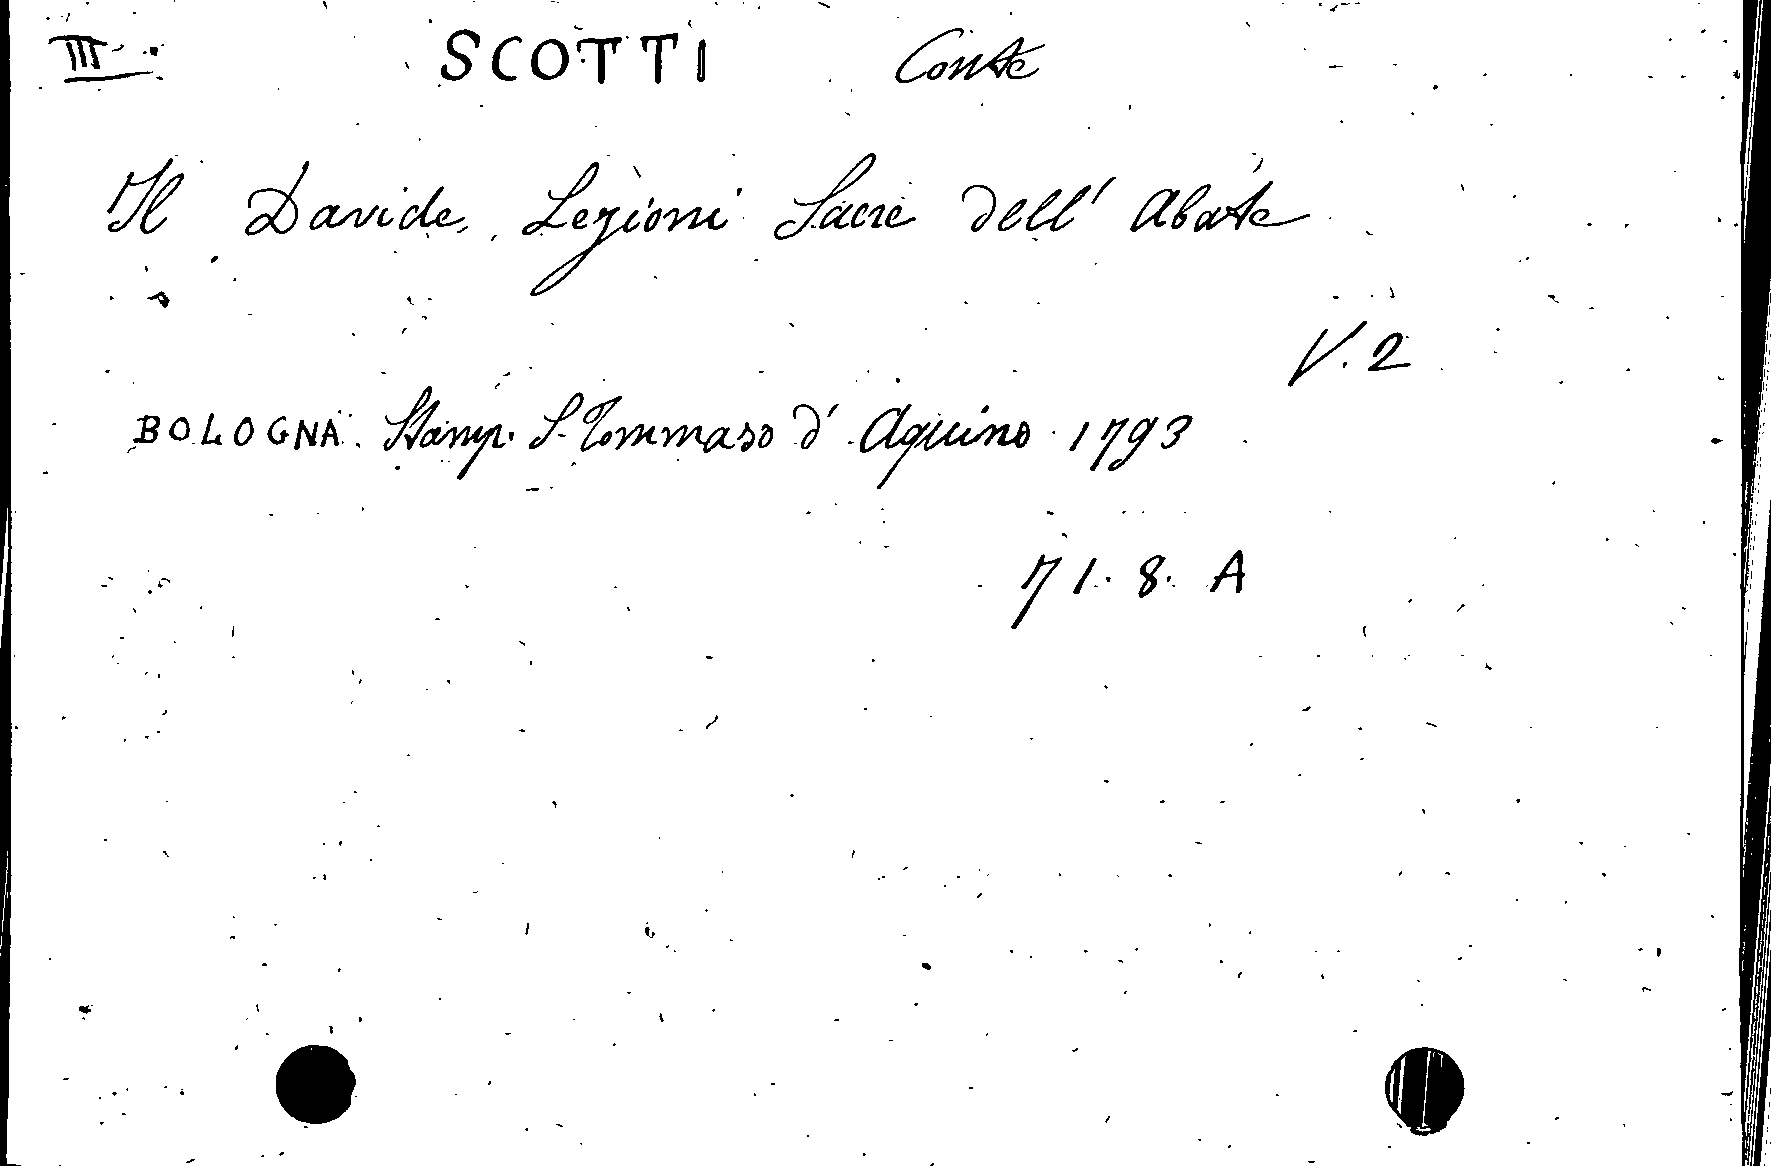 III SCOTTI Conte
Il Davide, Lezioni Sacre dell' Abate
V. 2
BOLOGNA. Stamp. S. Tommaso d' Aquino 1793
71. 8. A